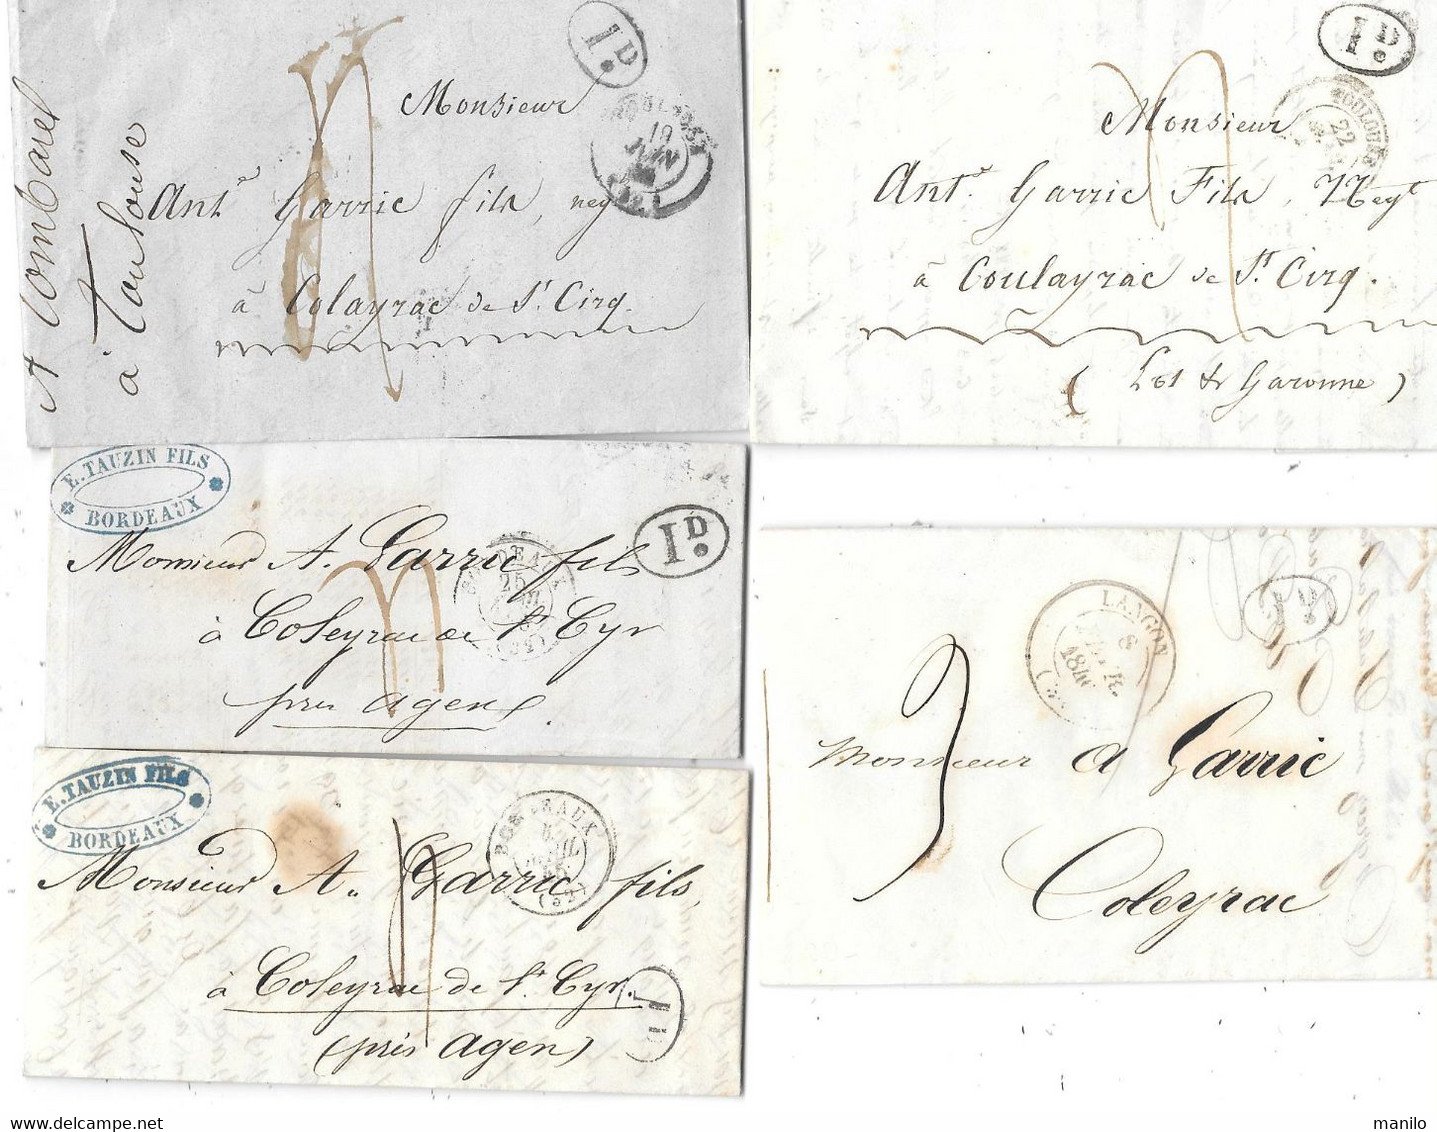 1D.
Monsieur
Ant.e Garric fils, neg
à Colayrac de St Cirq.
à Toulouse
19
JUIN
1D.
TOULOUSE
22
Monsieur
Ant.e Garric Fils, Negt
à Coulayrac de St Cirq.
( Lot & Garonne )
E. TAUZIN FILS
BORDEAUX
1D.
BORDEAUX
25
(32)
Monsieur A. Garric fils
à Coleyrac de St Cyr
près Agen.
E. TAUZIN FILS
BORDEAUX
BORDEAUX
(32)
Monsieur A. Garric fils,
à Coleyrac de St Cyr.
(près Agen)
1D
LANGON
8
184
1D.
3
Monsieur A Garric
Coleyrac
manilo
Delcampe.net